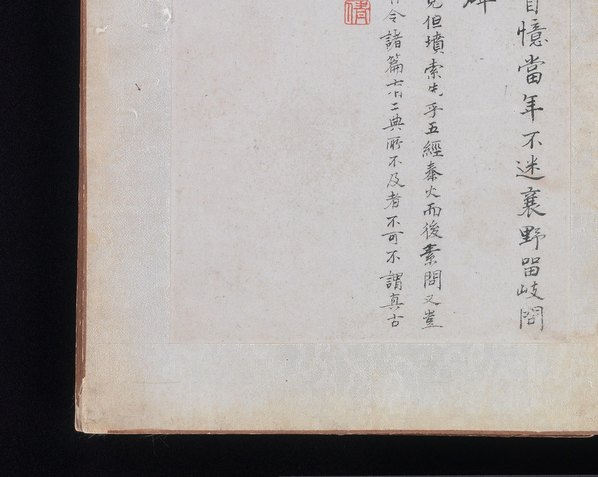 憶當年不迷襄野畱岐問
碑
但墳索先乎五經秦火而後素問又豈
令諸篇六古二典所不及者不可不謂真古